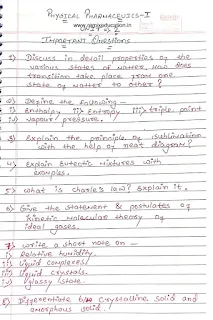 PHYSICAL PHARMACEUTICS-I
UNIT-2
IMPORTANT QUESTIONS
1) Discuss in detail properties of the
various states of matter. How does
transition take place from one
state of matter to other?
2) Define the following -
i) Enthalpy ii) Entropy iii) triple point
iv) vapour pressure.
3) Explain the principle of sublimation
with the help of neat diagram?
4) Explain Eutectic mixtures with
examples.
5) What is Charle's law? Explain it.
6) Give the statement & postulates of
Kinetic Molecular theory of
ideal gases.
7) Write a short note on -
i) Relative humidity
ii) Liquid complexes
iii) Liquid crystals.
iv) glassy state.
8) Differentiate b/w Crystalline solid and
amorphous solid.